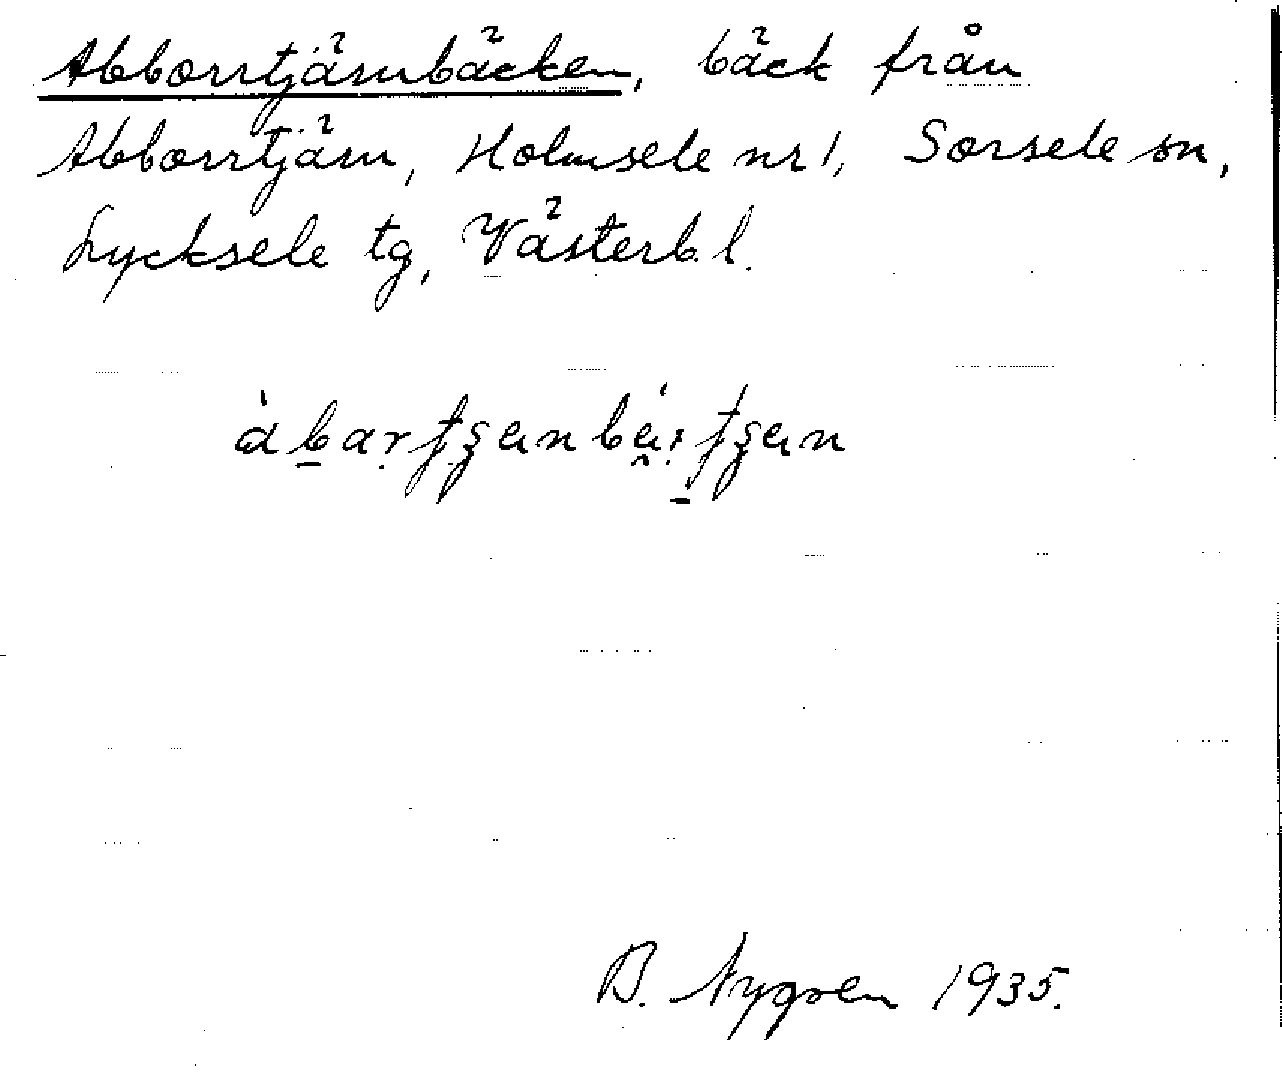 Abborrtjärnbäcken, bäck från
Abborrtjärn, Holmsele nr 1, Sorsele sn,
Lycksele tg, Västerb. l.
B. Nygren 1935.